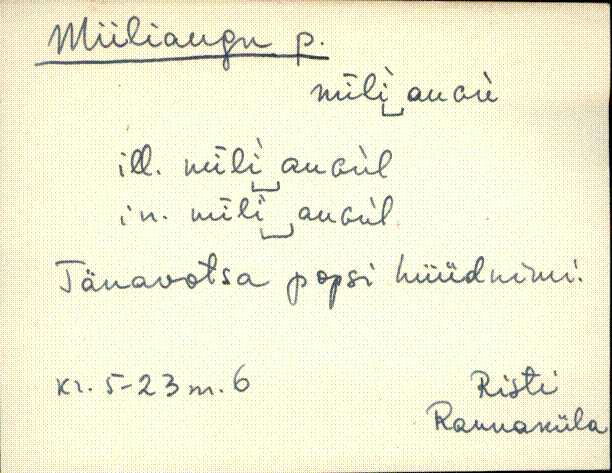 Miiliaugu p.
mīlì‿auGù
ill. mīlì‿auGùl
in. mīlì‿auGùl
Tänavotsa popsi hüüdnimi.
kr. 5-23 m. 6
Risti
Rannaküla